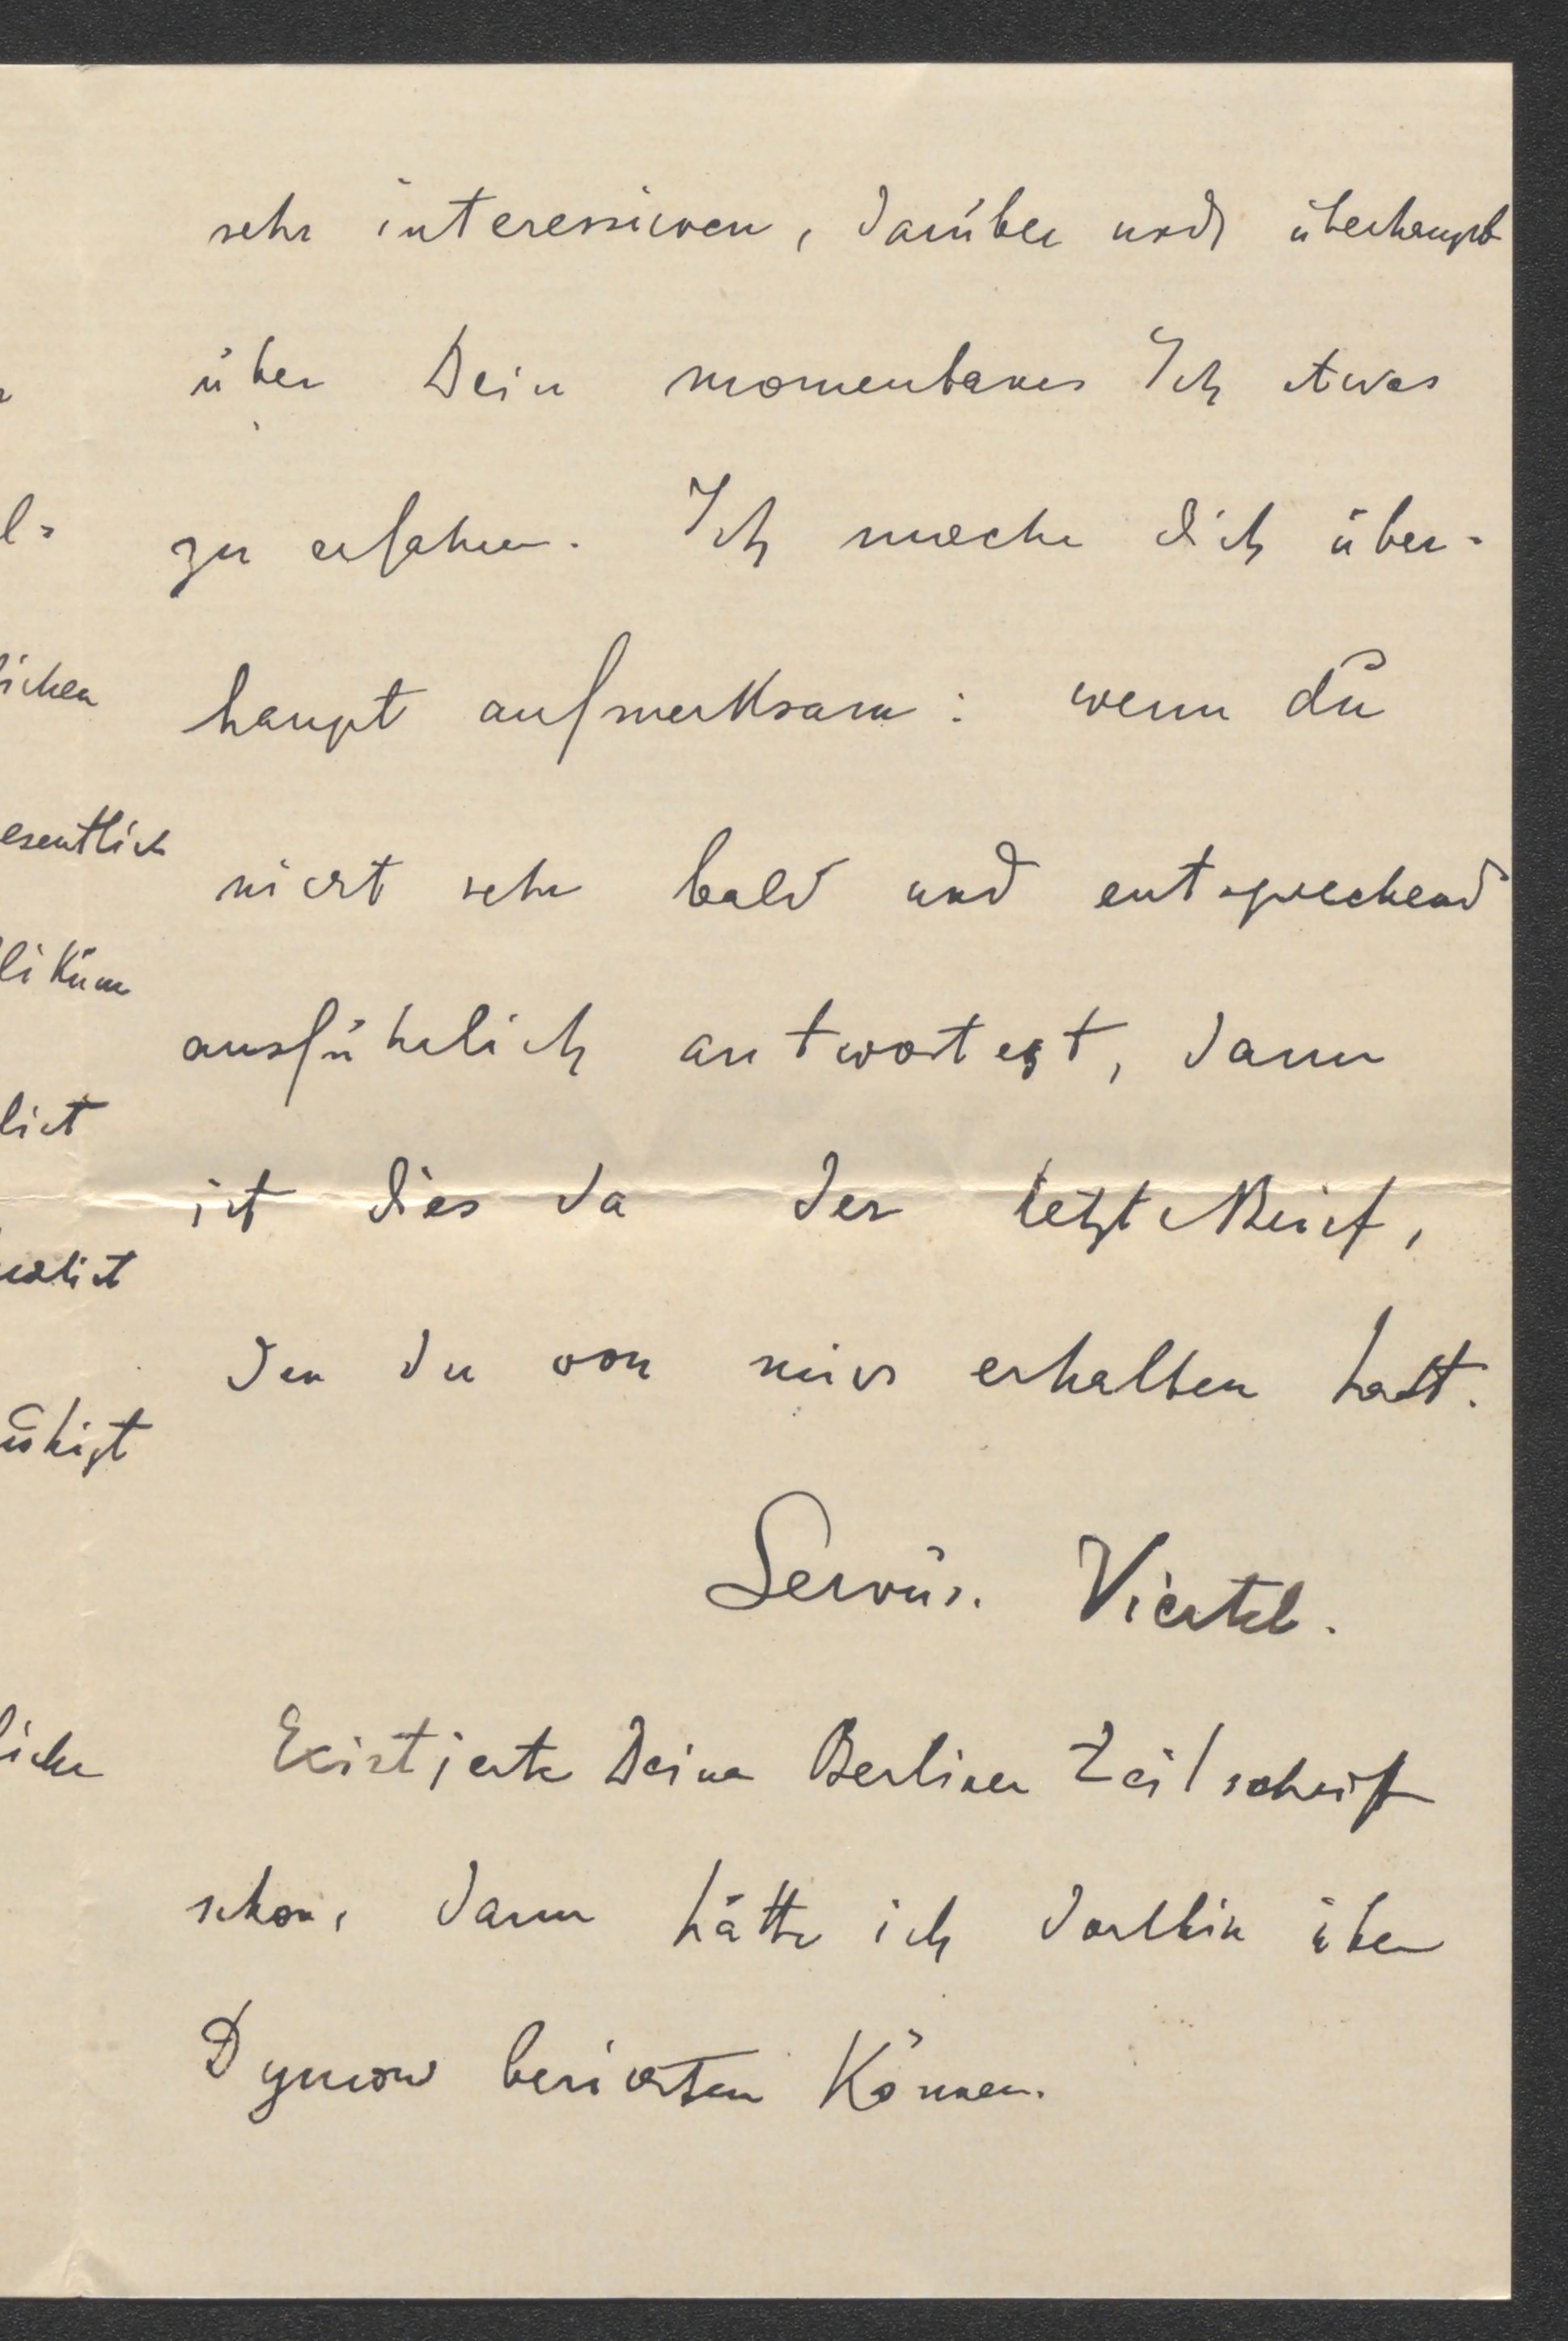 sehr interessieren, darüber und überhaupt
über Dein momentanes Ich etwas
zu erfahren. Ich mache dich über-
haupt aufmerksam: wenn du
nicht sehr bald und entsprechend
ausführlich antwortest, dann
ist dies da der letzte Brief,
den du von mir erhalten hast.
Servus. Viertel.
Existierte Deine Berliner Zeitschrift
schon, dann hätte ich dorthin über
Dymow berichten können.